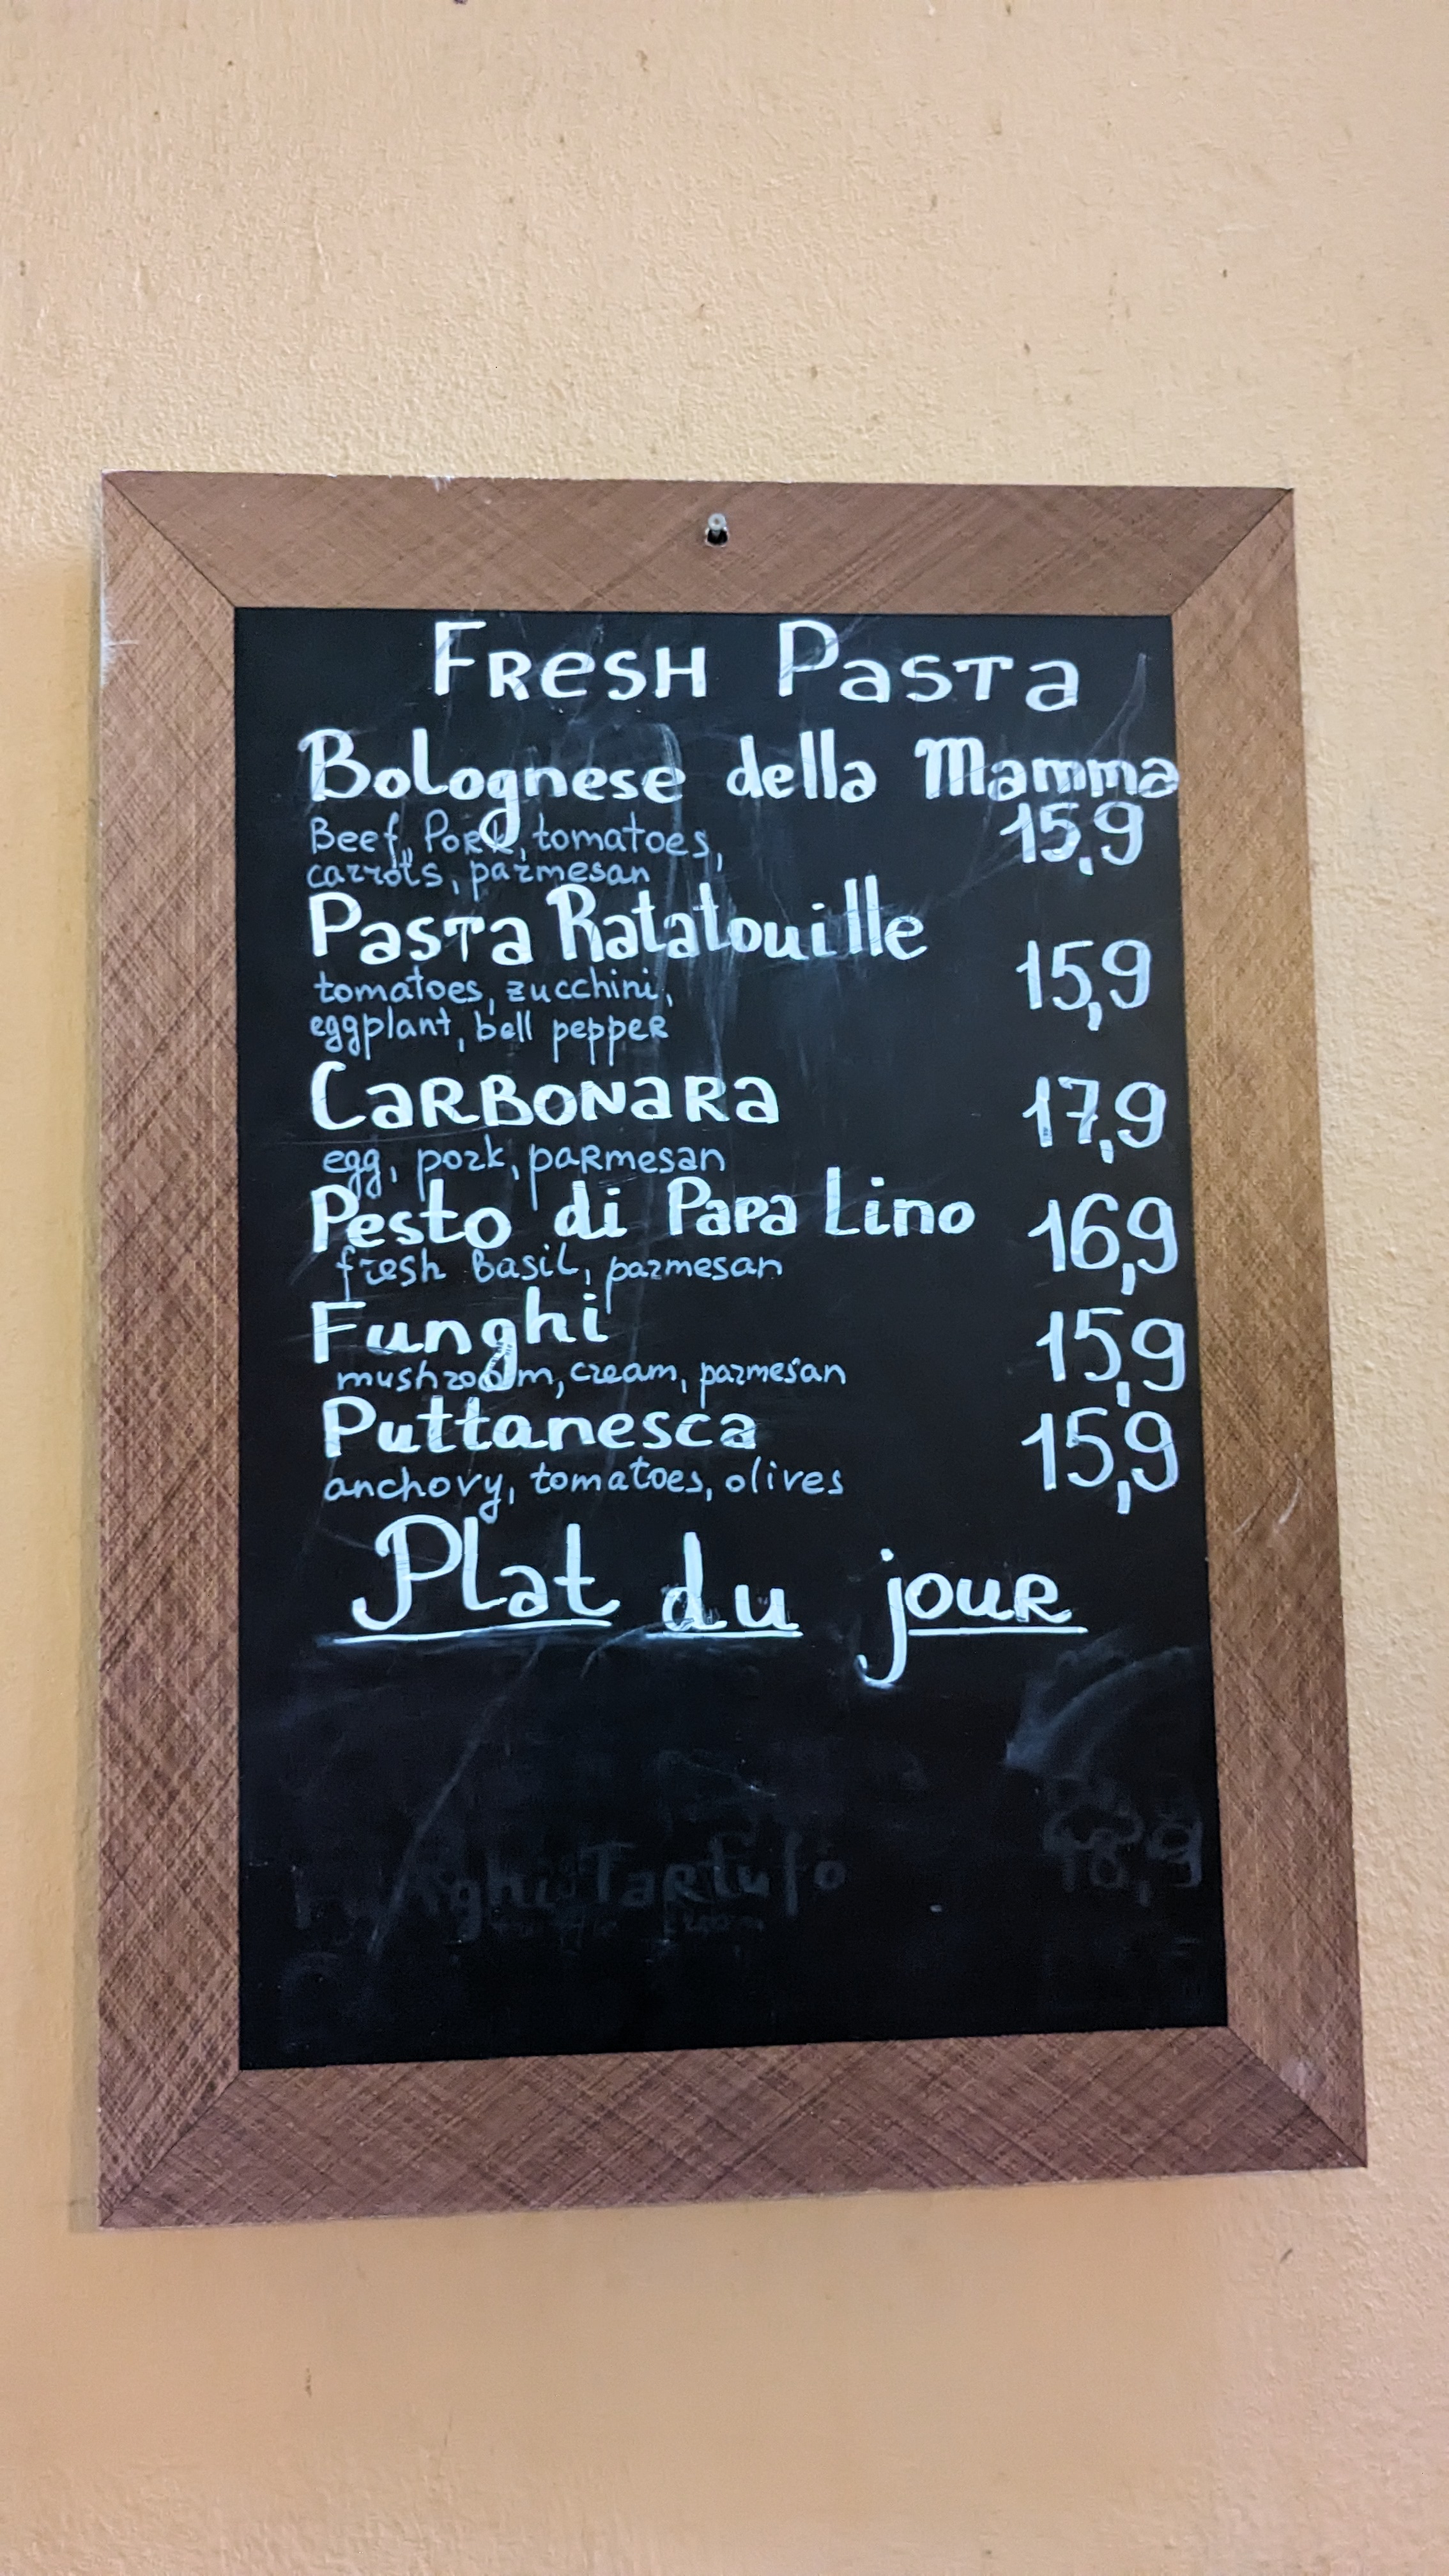 FResH PasTa
Bolognese della Mamma
15,9
Beef, PoRk, tomatoes,
carrots, parmesan
PasTa Ratatouille
15,9
tomatoes, zucchini,
eggplant, bell pepper
CaRBONaRa 17,9
egg, pork, paRmesan
Pesto di Papa Lino 16,9
fresh Basil, parmesan
Funghi 15,9
mushroom, cream, parmesan
Puttanesca 15,9
anchovy, tomatoes, olives
Plat du jouR
Funghi TaRtufo 18,9